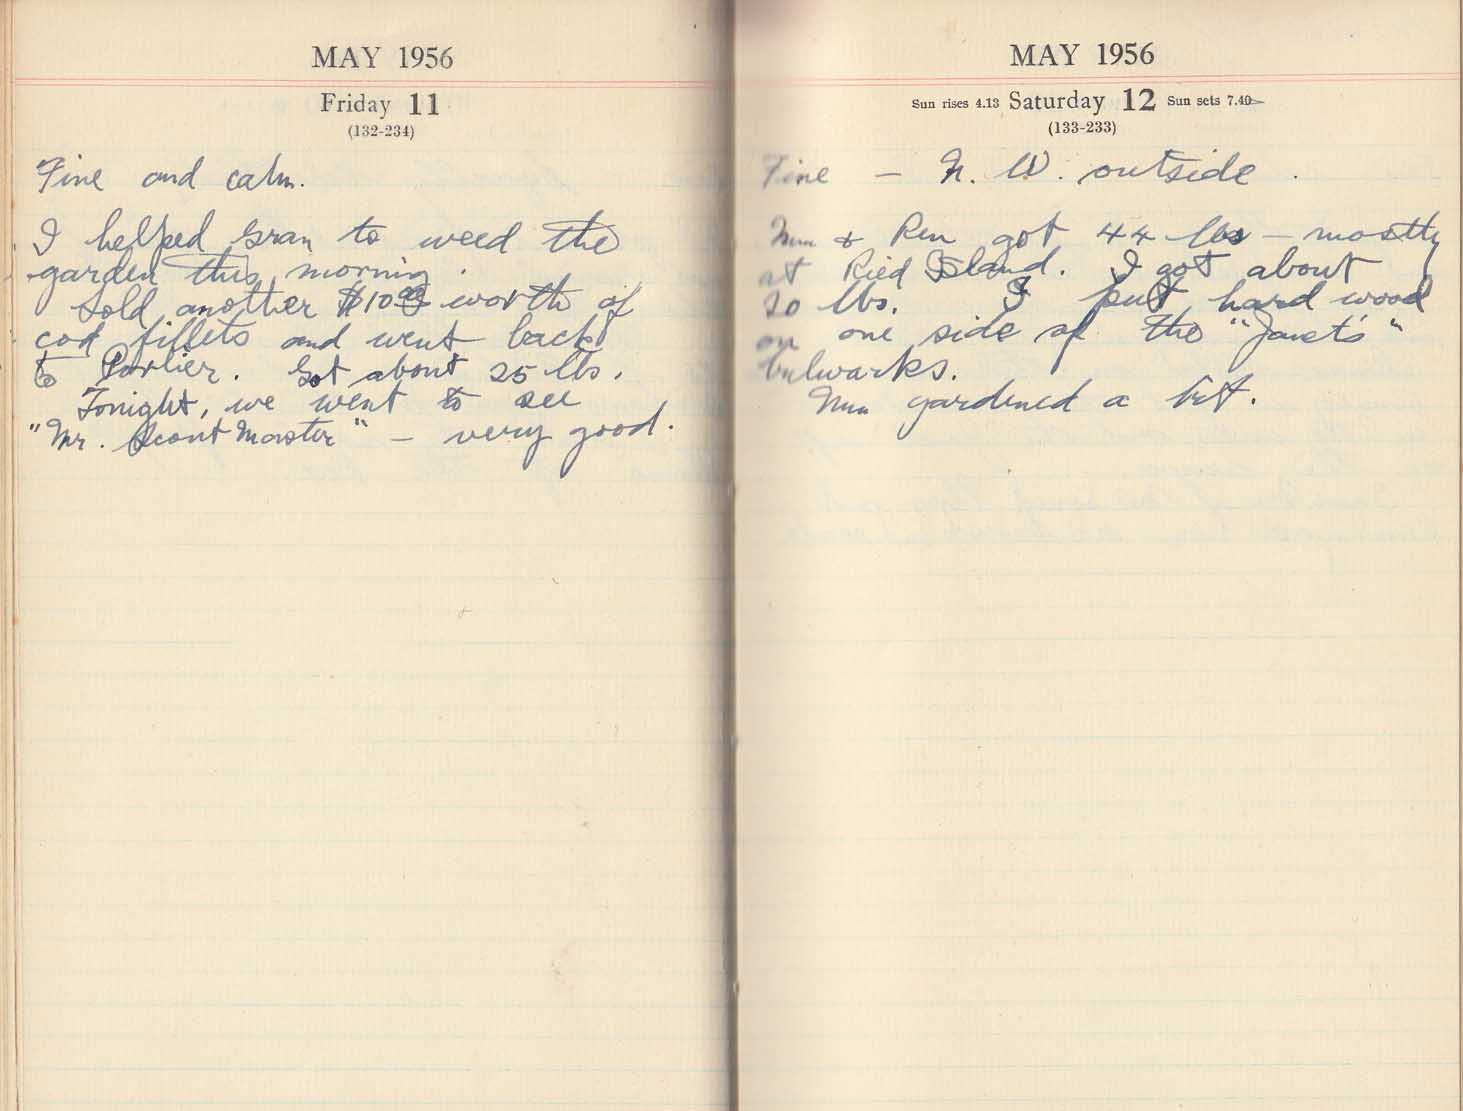 MAY 1956
Friday 11
(132-234)
Fine and calm.
I helped Gran to weed the
garden this morning.
Sold another $10.00 worth of
cod fillets and went back
to Porlier. Got about 25 lbs.
Tonight, we went to see
"Mr. Scout Master" - very good.
MAY 1956
Sun rises 4.13 Saturday 12 Sun sets 7.40
(133-233)
Fine - N. W. outside.
& got 44 lbs - mostly
at Ried Island. I got about
20 lbs. I put hard wood
on one side of the "Janet's"
bulwarks.
gardened a bit.